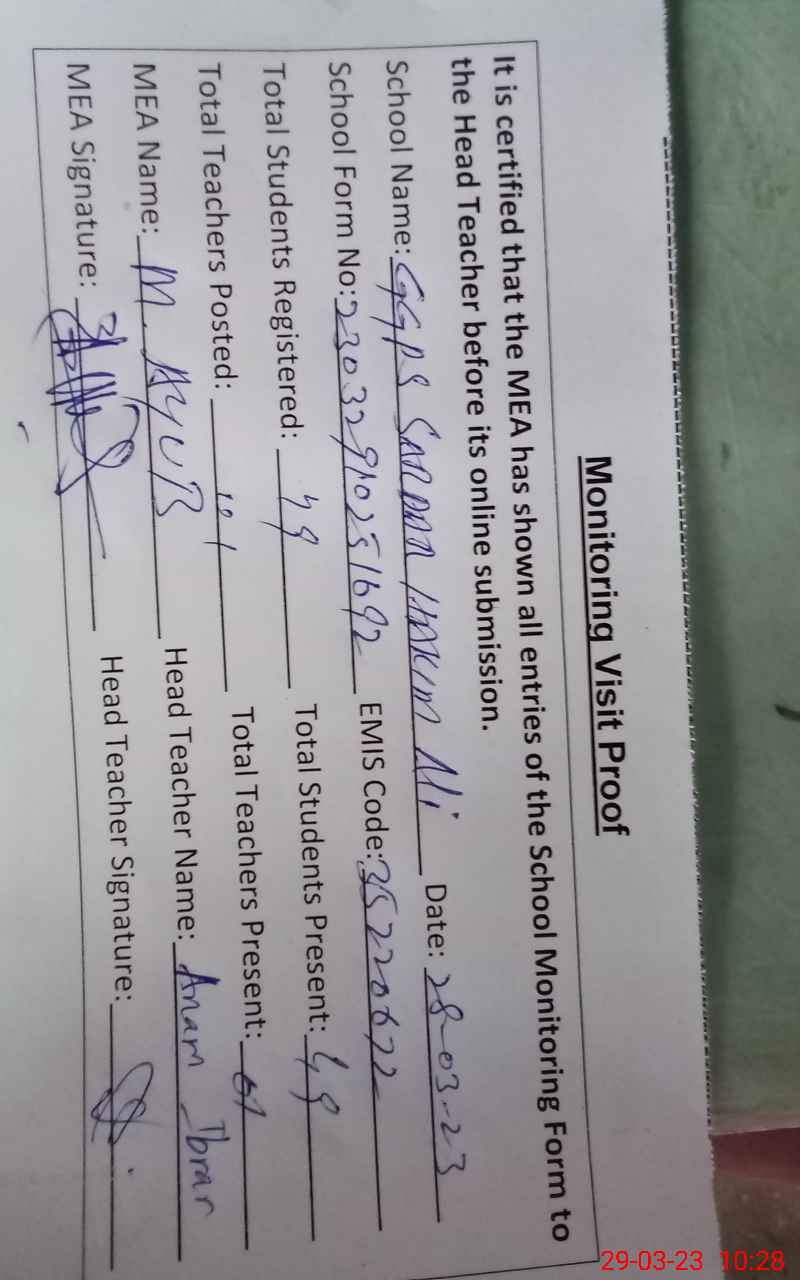 Monitoring Visit Proof
It is certified that the MEA has shown all entries of the School Monitoring Form to
the Head Teacher before its online submission.
School Name: GGPS SARDAR HAKIM Ali Date: 28-03-23
School Form No: 23032910251692 EMIS Code: 35220672
Total Students Registered: 49 Total Students Present: 49
Total Teachers Posted: 01 Total Teachers Present: 01
MEA Name: M. AYUB Head Teacher Name: Anam Ibrar
MEA Signature: Head Teacher Signature:
29-03-23 10:28